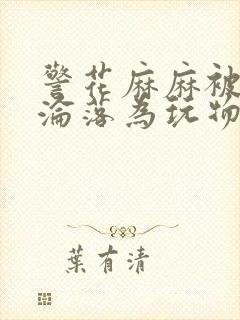 警花麻麻被
淪落為玩物
葉有清